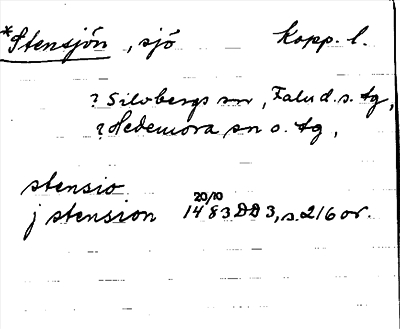 *Stensjön, sjö Kopp. l.
? Silvbergs sn, Falu d.s. tg,
? Hedemora sn o. tg,
stensio
j stension 20/10 1483 DD 3, s. 216 or.